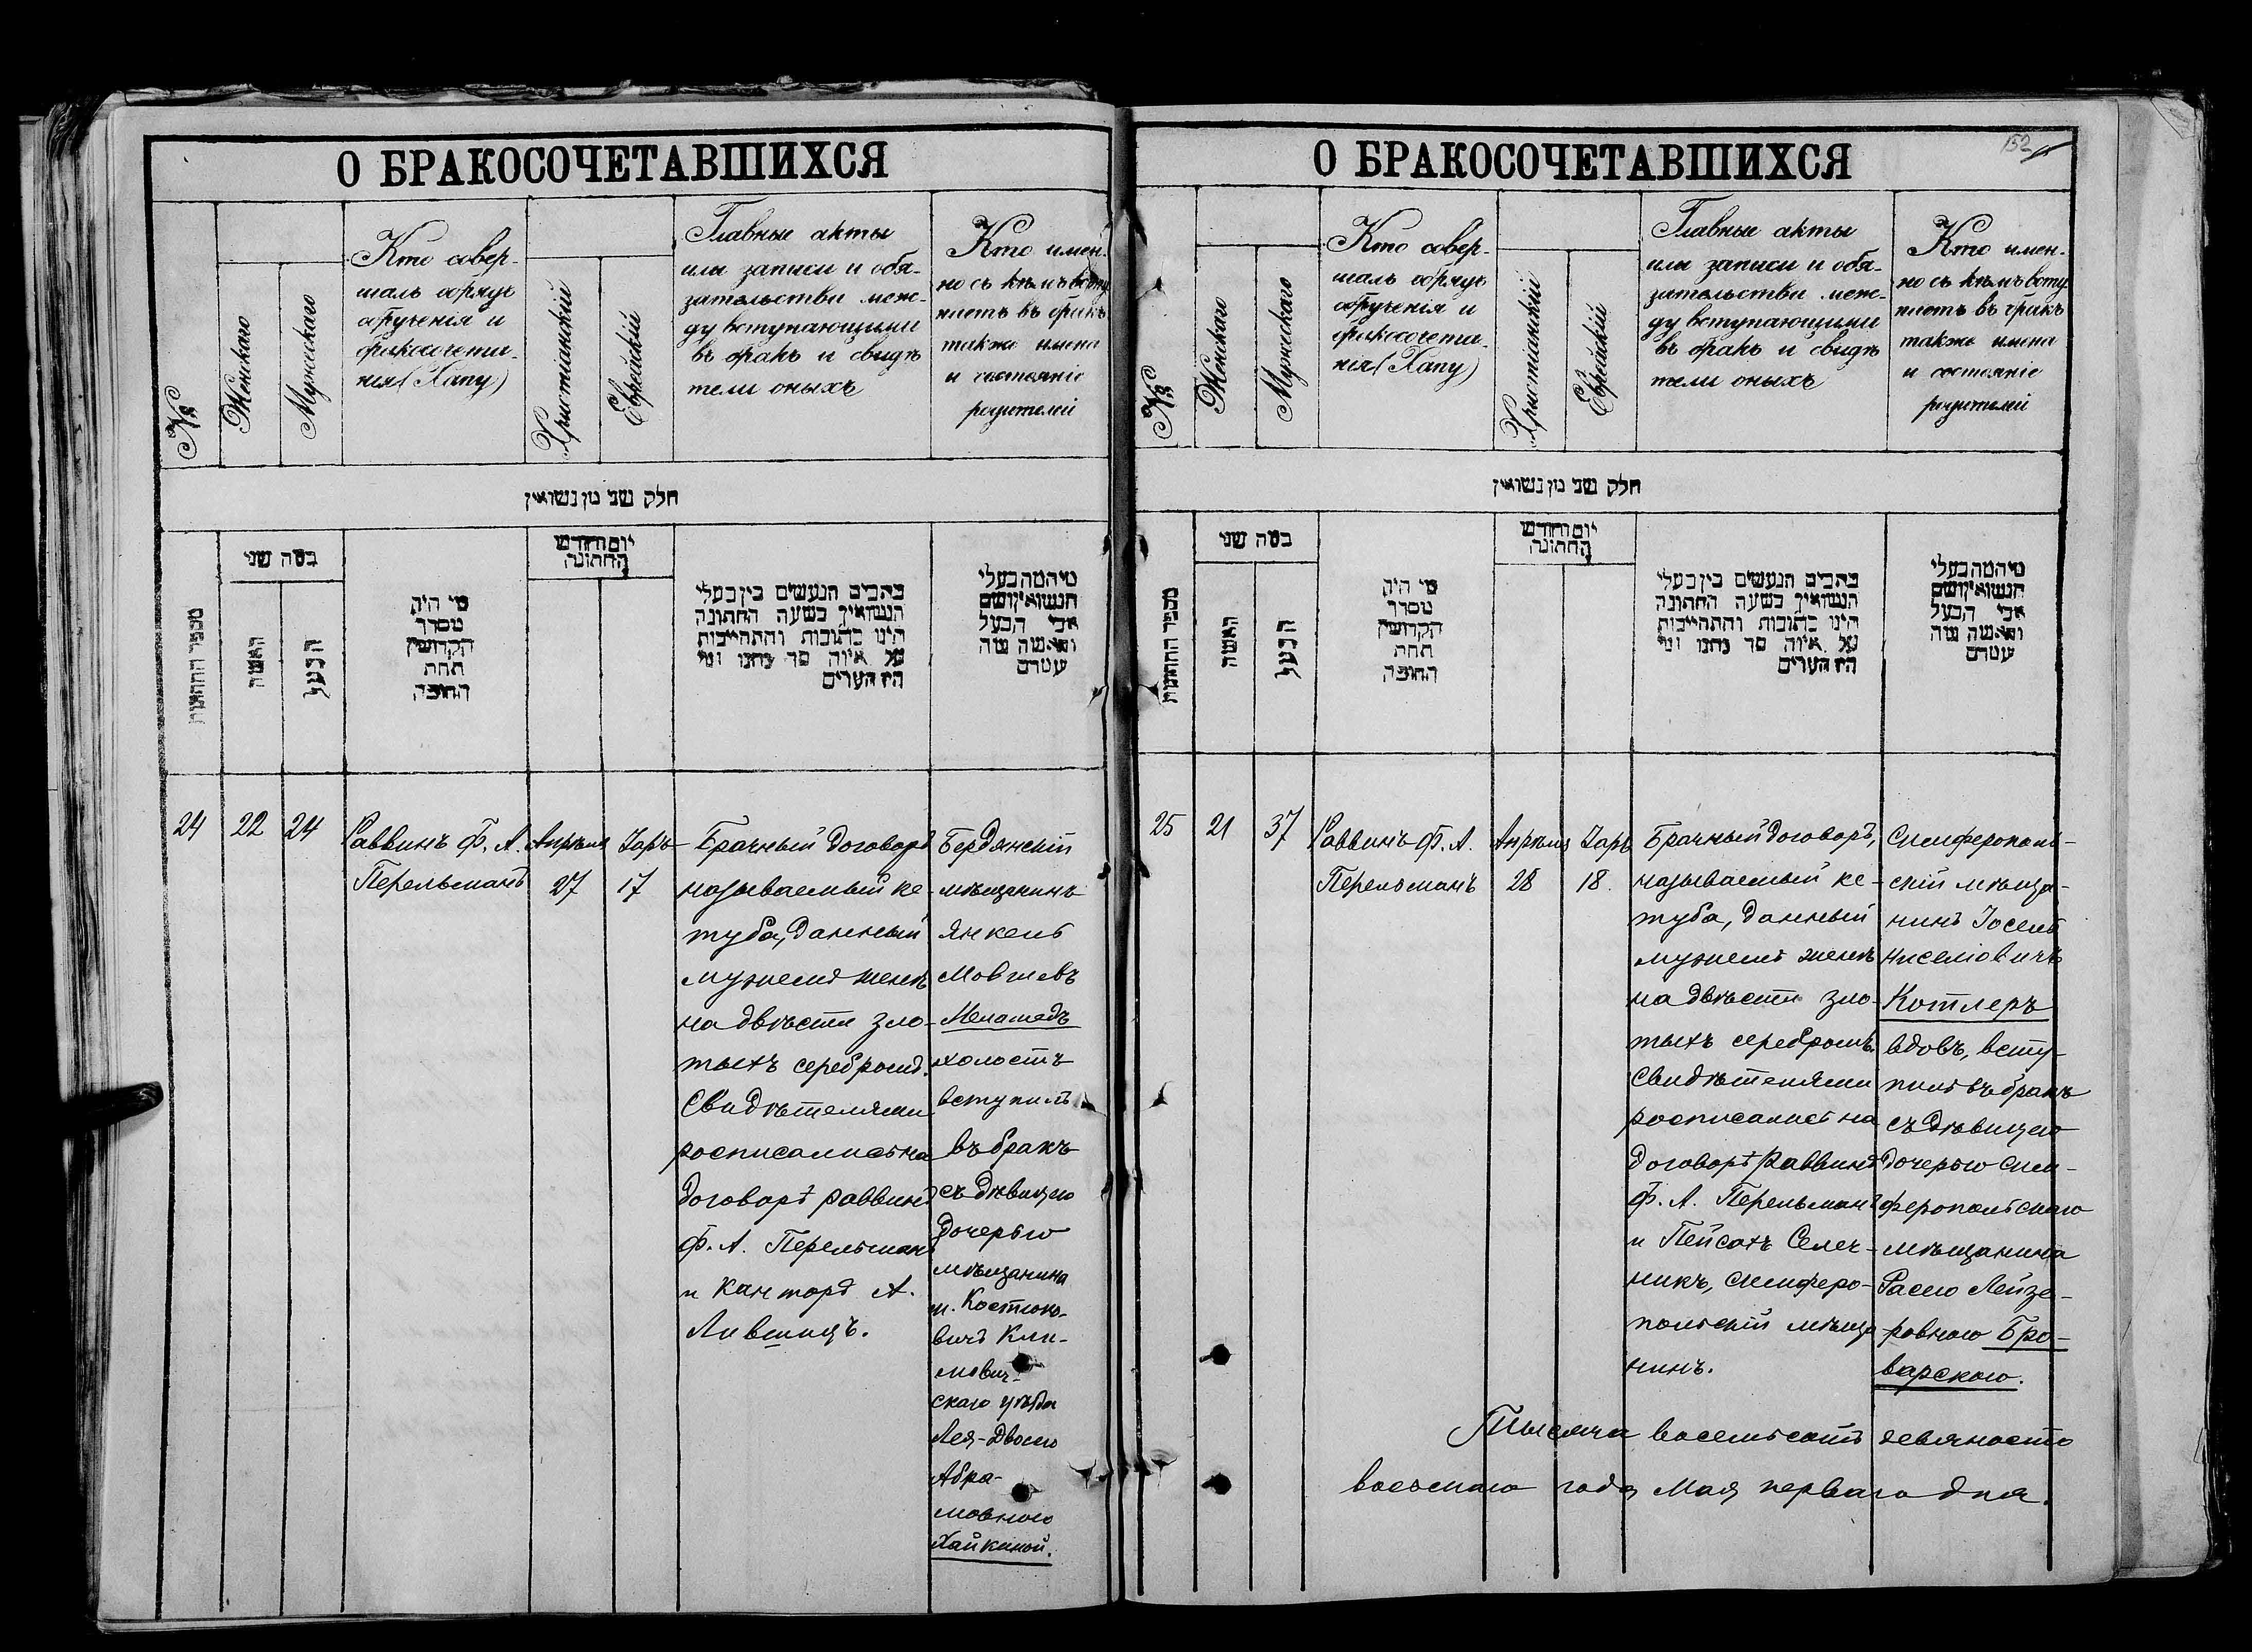 О БРАКОСОЧЕТАВШИХСЯ
№
Женскаго
Мужескаго
Кто совер-
шалъ обрядъ
обрученія и
бракосочета-
нія (Хапу)
Христіанскій
Еврейскій
Главные акты
или записи и обя-
зательства меж-
ду вступающими
въ бракъ и свидѣ
тели оныхъ
Кто имен-
но съ кѣмъ всту
паетъ въ бракъ
также имена
и состояніе
родителей
חלק שני מן נשואין
מספר החתונות
כמה שני
האשה
הבעל
מי היה
מסדר
הקדושין
תחת
החופה
יום וחודש
החתונה
כתבים הנעשים בין בעלי
הנשואין בשעה החתונה
היינו כתובות והתחייבות
על איזה סך נתנו ומי
היו העדים
מיהמה בעלי
הנשואין ושם
אבי הבעל
והאשה
24
22
24
Раввинъ Ф. А.
Перельманъ
Апрѣля
27
Іаръ
17
Брачный договоръ
называемый ке-
туба, данный
мужемъ женѣ
на двѣсти зло-
тыхъ серебромъ.
Свидѣтелями
росписались на
договорѣ раввинъ
Ф. А. Перельманъ
и канторъ А.
Лившицъ.
Бердянскій
мѣщанинъ
Янкель
Мовшевъ
Меламедъ
холостъ
вступилъ
въ бракъ
съ дѣвицею
дочерью
мѣщанина
м. Костюко-
вичъ Кли-
мович-
скаго уѣзда
Лея-Двосею
Абра-
мовною
Хайкиной.
О БРАКОСОЧЕТАВШИХСЯ
152
№
Женскаго
Мужескаго
Кто совер-
шалъ обрядъ
обрученія и
бракосочета-
нія (Хапу)
Христіанскій
Еврейскій
Главные акты
или записи и обя-
зательства меж-
ду вступающими
въ бракъ и свидѣ
тели оныхъ
Кто имен-
но съ кѣмъ всту
паетъ въ бракъ
также имена
и состояніе
родителей
חלק שני מן נשואין
מספר החתונות
כמה שני
האשה
הבעל
מי היה
מסדר
הקדושין
תחת
החופה
יום וחודש
החתונה
כתבים הנעשים בין בעלי
הנשואין בשעה החתונה
היינו כתובות והתחייבות
על איזה סך נתנו ומי
היו העדים
מיהמה בעלי
הנשואין ושם
אבי הבעל
והאשה
25
21
37
Раввинъ Ф. А.
Перельманъ
Апрѣля
28
Іаръ
18.
Брачный договоръ,
называемый ке-
туба, данный
мужемъ женѣ
на двѣсти зло-
тыхъ серебромъ.
Свидѣтелями
росписались на
договорѣ Раввинъ
Ф. А. Перельманъ
и Пейсахъ Селеч-
никъ, симферо-
польскій мѣща
нинъ.
Симферополь-
скій мѣща-
нинъ Іосель
Ниселіовичъ
Котлеръ
вдовъ, всту-
пилъ въ бракъ
съ дѣвицею
дочерью Сим-
феропольскаго
мѣщанина
Расею Лейзе-
ровною Бро-
варскою.
Тысяча восемьсотъ девяносто
восьмаго года Мая перваго дня.